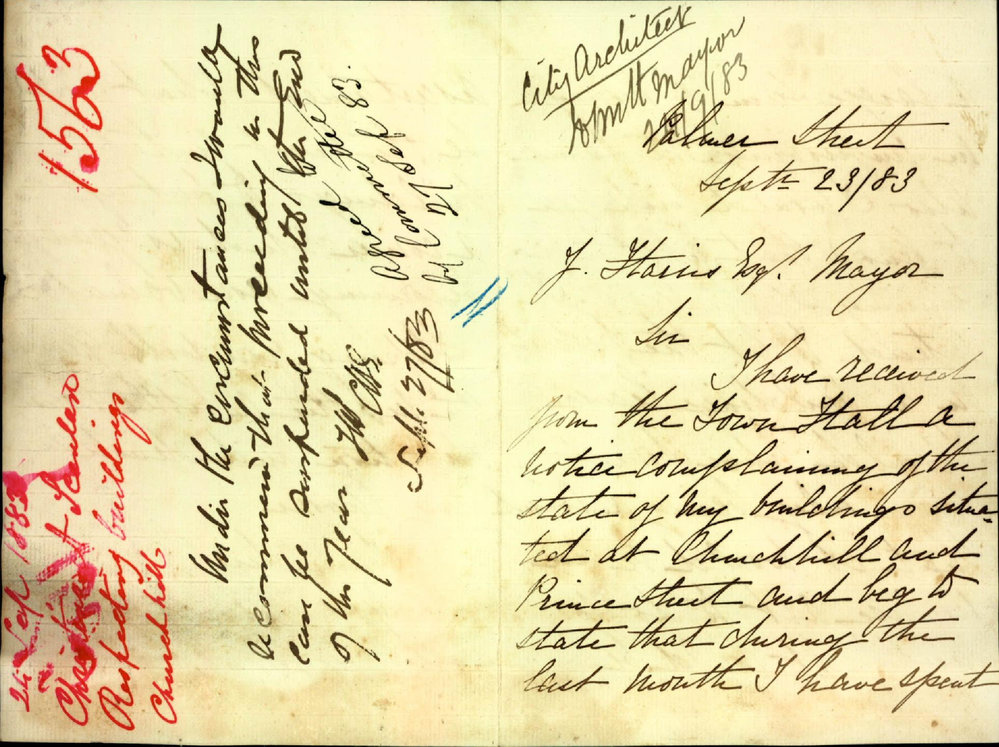 153
24 Sep 1883
Christina Scanlen
Respecting buildings
Churchhill
Under the circumstances I would
recommend that proceeding in this
case be suspended until the End
of the Year
Sept. 27/83
Agreed
27 Sep 83.
City Architect
John H Mayor
24/9/83
Palmer Street
Septr 23/83
J. Harris Esqr. Mayor
Sir
I have received
from the Town Hall a
notice complaining of the
state of my buildings situa-
ted at Churchhill and
Prince Street and beg to
state that during the
last month I have spent